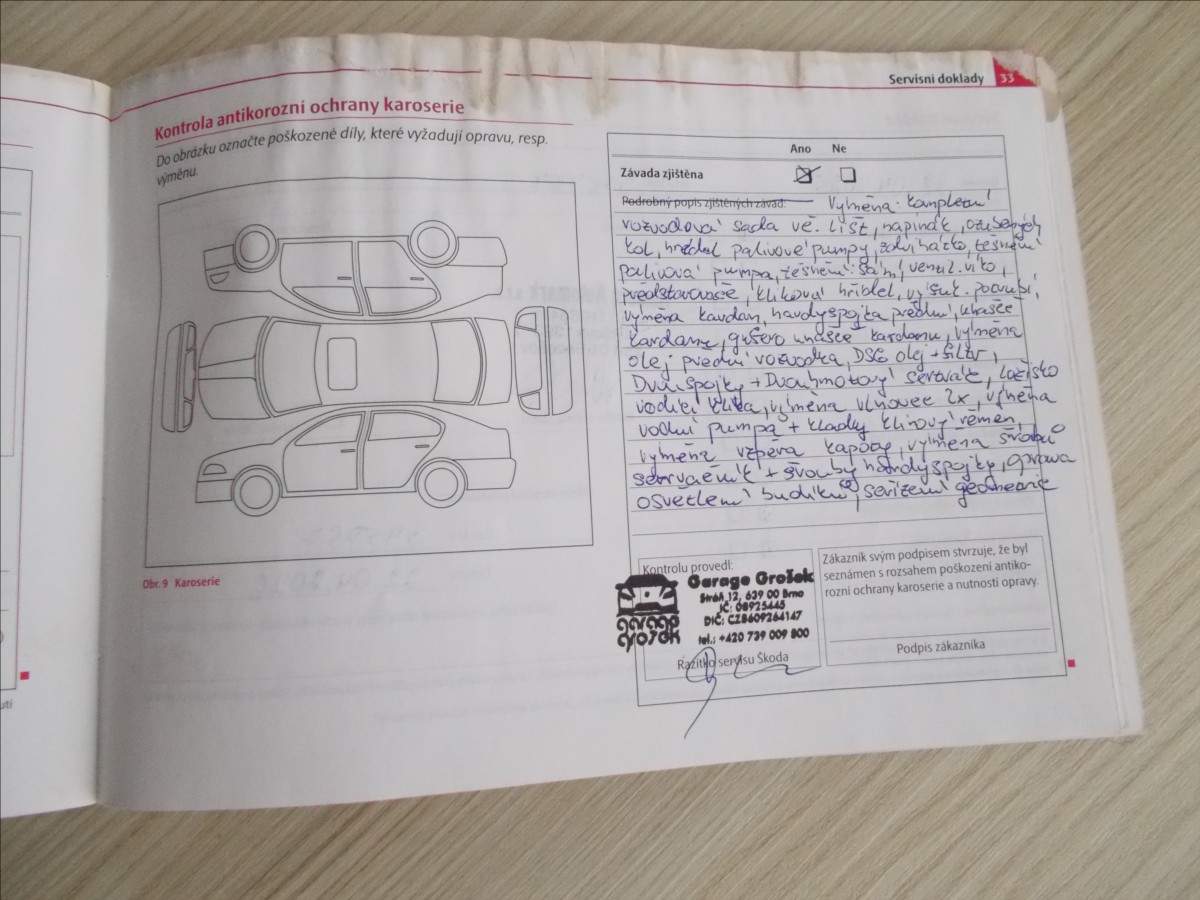 Servisní doklady 33
Kontrola antikorozní ochrany karoserie
Do obrázku označte poškozené díly, které vyžadují opravu, resp.
výměnu.
Obr. 9 Karoserie
Ano Ne
Závada zjištěna
Podrobný popis zjištěných závad: Výměna kompletní
rozvodová sada vč. lišt, napínák, ozubených
kol, hřídel palivové pumpy, zdvihátko, těsnění
palivová pumpa, těsnění sání, ventil. víko,
předstřikovače, kliková hřídel, výfuk. potrubí,
výměna kardan, hardyspojka přední, unašeče
kardanu, gufero unašeče kardanu, výměna
olej přední rozvodka, DSG olej + filtr,
Dvouspojky + Dvouhmotový setrvač, ložisko
vodící klika, výměna vlnovec 2x, výměna
vodní pumpa + kladky klínový řemen,
výměna vzpěra kapoty, výměna šroubů
setrvačník + šrouby hardyspojky, oprava
osvětlení budíků, seřízení geometrie
Kontrolu provedl:
Garage Grošek
Stráň 12, 639 00 Brno
IČ: 08925445
DIČ: CZ8609264147
tel.: +420 739 009 800
garage
grošek
Razítko servisu Škoda
Zákazník svým podpisem stvrzuje, že byl
seznámen s rozsahem poškození antiko-
rozní ochrany karoserie a nutností opravy.
Podpis zákazníka